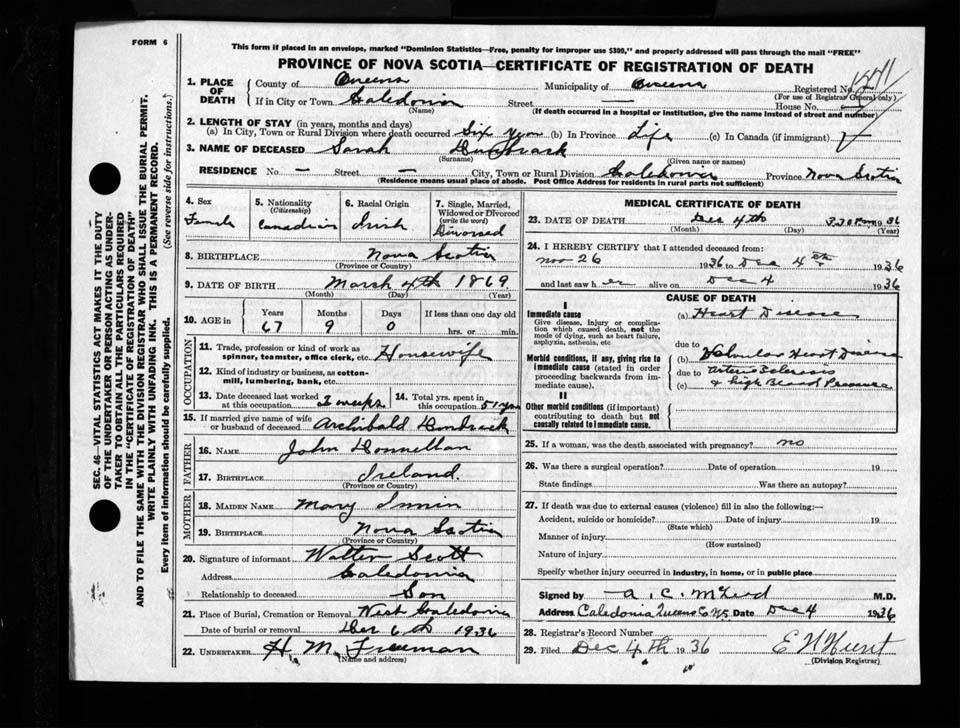 FORM 6
This form if placed in an envelope, marked "Dominion Statistics—Free, penalty for improper use $300," and properly addressed will pass through the mail "FREE"
PROVINCE OF NOVA SCOTIA—CERTIFICATE OF REGISTRATION OF DEATH
SEC. 46—VITAL STATISTICS ACT MAKES IT THE DUTY
OF THE UNDERTAKER OR PERSON ACTING AS UNDER-
TAKER TO OBTAIN ALL THE PARTICULARS REQUIRED
IN THE "CERTIFICATE OF REGISTRATION OF DEATH"
AND TO FILE THE SAME WITH THE DIVISION REGISTRAR WHO SHALL ISSUE THE BURIAL PERMIT.
WRITE PLAINLY WITH UNFADING INK. THIS IS A PERMANENT RECORD.
Every item of information should be carefully supplied. (See reverse side for instructions.)
1. PLACE OF DEATH
County of Queens Municipality of Queens Registered No.
(For use of Registrar General only)
If in City or Town Caledonia Street — House No.
(Name) (If death occurred in a hospital or institution, give the name instead of street and number)
2. LENGTH OF STAY (in years, months and days)
(a) In City, Town or Rural Division where death occurred Six years (b) In Province Life (c) In Canada (if immigrant)
3. NAME OF DECEASED Sarah
(Surname) (Given name or names)
RESIDENCE No. — Street — City, Town or Rural Division Caledonia Province Nova Scotia
(Residence means usual place of abode. Post Office Address for residents in rural parts not sufficient)
4. Sex Female
5. Nationality (Citizenship) Canadian
6. Racial Origin Irish
7. Single, Married, Widowed or Divorced (write the word) Divorced
8. BIRTHPLACE Nova Scotia
(Province or Country)
9. DATE OF BIRTH March 4th 1869
(Month) (Day) (Year)
10. AGE in Years Months Days If less than one day old
67 9 0 hrs. or min.
OCCUPATION
11. Trade, profession or kind of work as spinner, teamster, office clerk, etc. Housewife
12. Kind of industry or business, as cotton-mill, lumbering, bank, etc.
13. Date deceased last worked at this occupation 2 weeks
14. Total yrs. spent in this occupation 51 yrs
15. If married give name of wife or husband of deceased Archibald
FATHER
16. NAME John Donnellan
17. BIRTHPLACE Ireland
(Province or Country)
MOTHER
18. MAIDEN NAME Mary
19. BIRTHPLACE Nova Scotia
(Province or Country)
20. Signature of informant Walter Scott
Address Caledonia
Relationship to deceased Son
21. Place of Burial, Cremation or Removal West Caledonia
Date of burial or removal Dec 6th 1936
22. UNDERTAKER H M Freeman
(Name and address)
MEDICAL CERTIFICATE OF DEATH
23. DATE OF DEATH Dec 4th 1936
(Month) (Day) (Year)
24. I HEREBY CERTIFY that I attended deceased from:
Nov 26 1936 to Dec 4th 1936
and last saw her alive on Dec 4 1936
CAUSE OF DEATH
I
Immediate cause
Give disease, injury or complication which caused death, not the mode of dying, such as heart failure, asphyxia, asthenia, etc
(a) Heart Disease
due to
Morbid conditions, if any, giving rise to immediate cause (stated in order proceeding backwards from immediate cause).
(b) Valvular Heart Disease
due to Arterio Sclerosis
(c) & high Blood Pressure
II
Other morbid conditions (if important) contributing to death but not causally related to immediate cause.
25. If a woman, was the death associated with pregnancy? no
26. Was there a surgical operation? Date of operation 19
State findings Was there an autopsy?
27. If death was due to external causes (violence) fill in also the following:—
Accident, suicide or homicide? Date of injury 19
(State which)
Manner of injury
(How sustained)
Nature of injury
Specify whether injury occurred in industry, in home, or in public place
Signed by A. C. McLeod M.D.
Address Caledonia Queens Co NS Date Dec 4 1936
28. Registrar's Record Number
29. Filed Dec 4th 1936 E N Hunt
(Division Registrar)